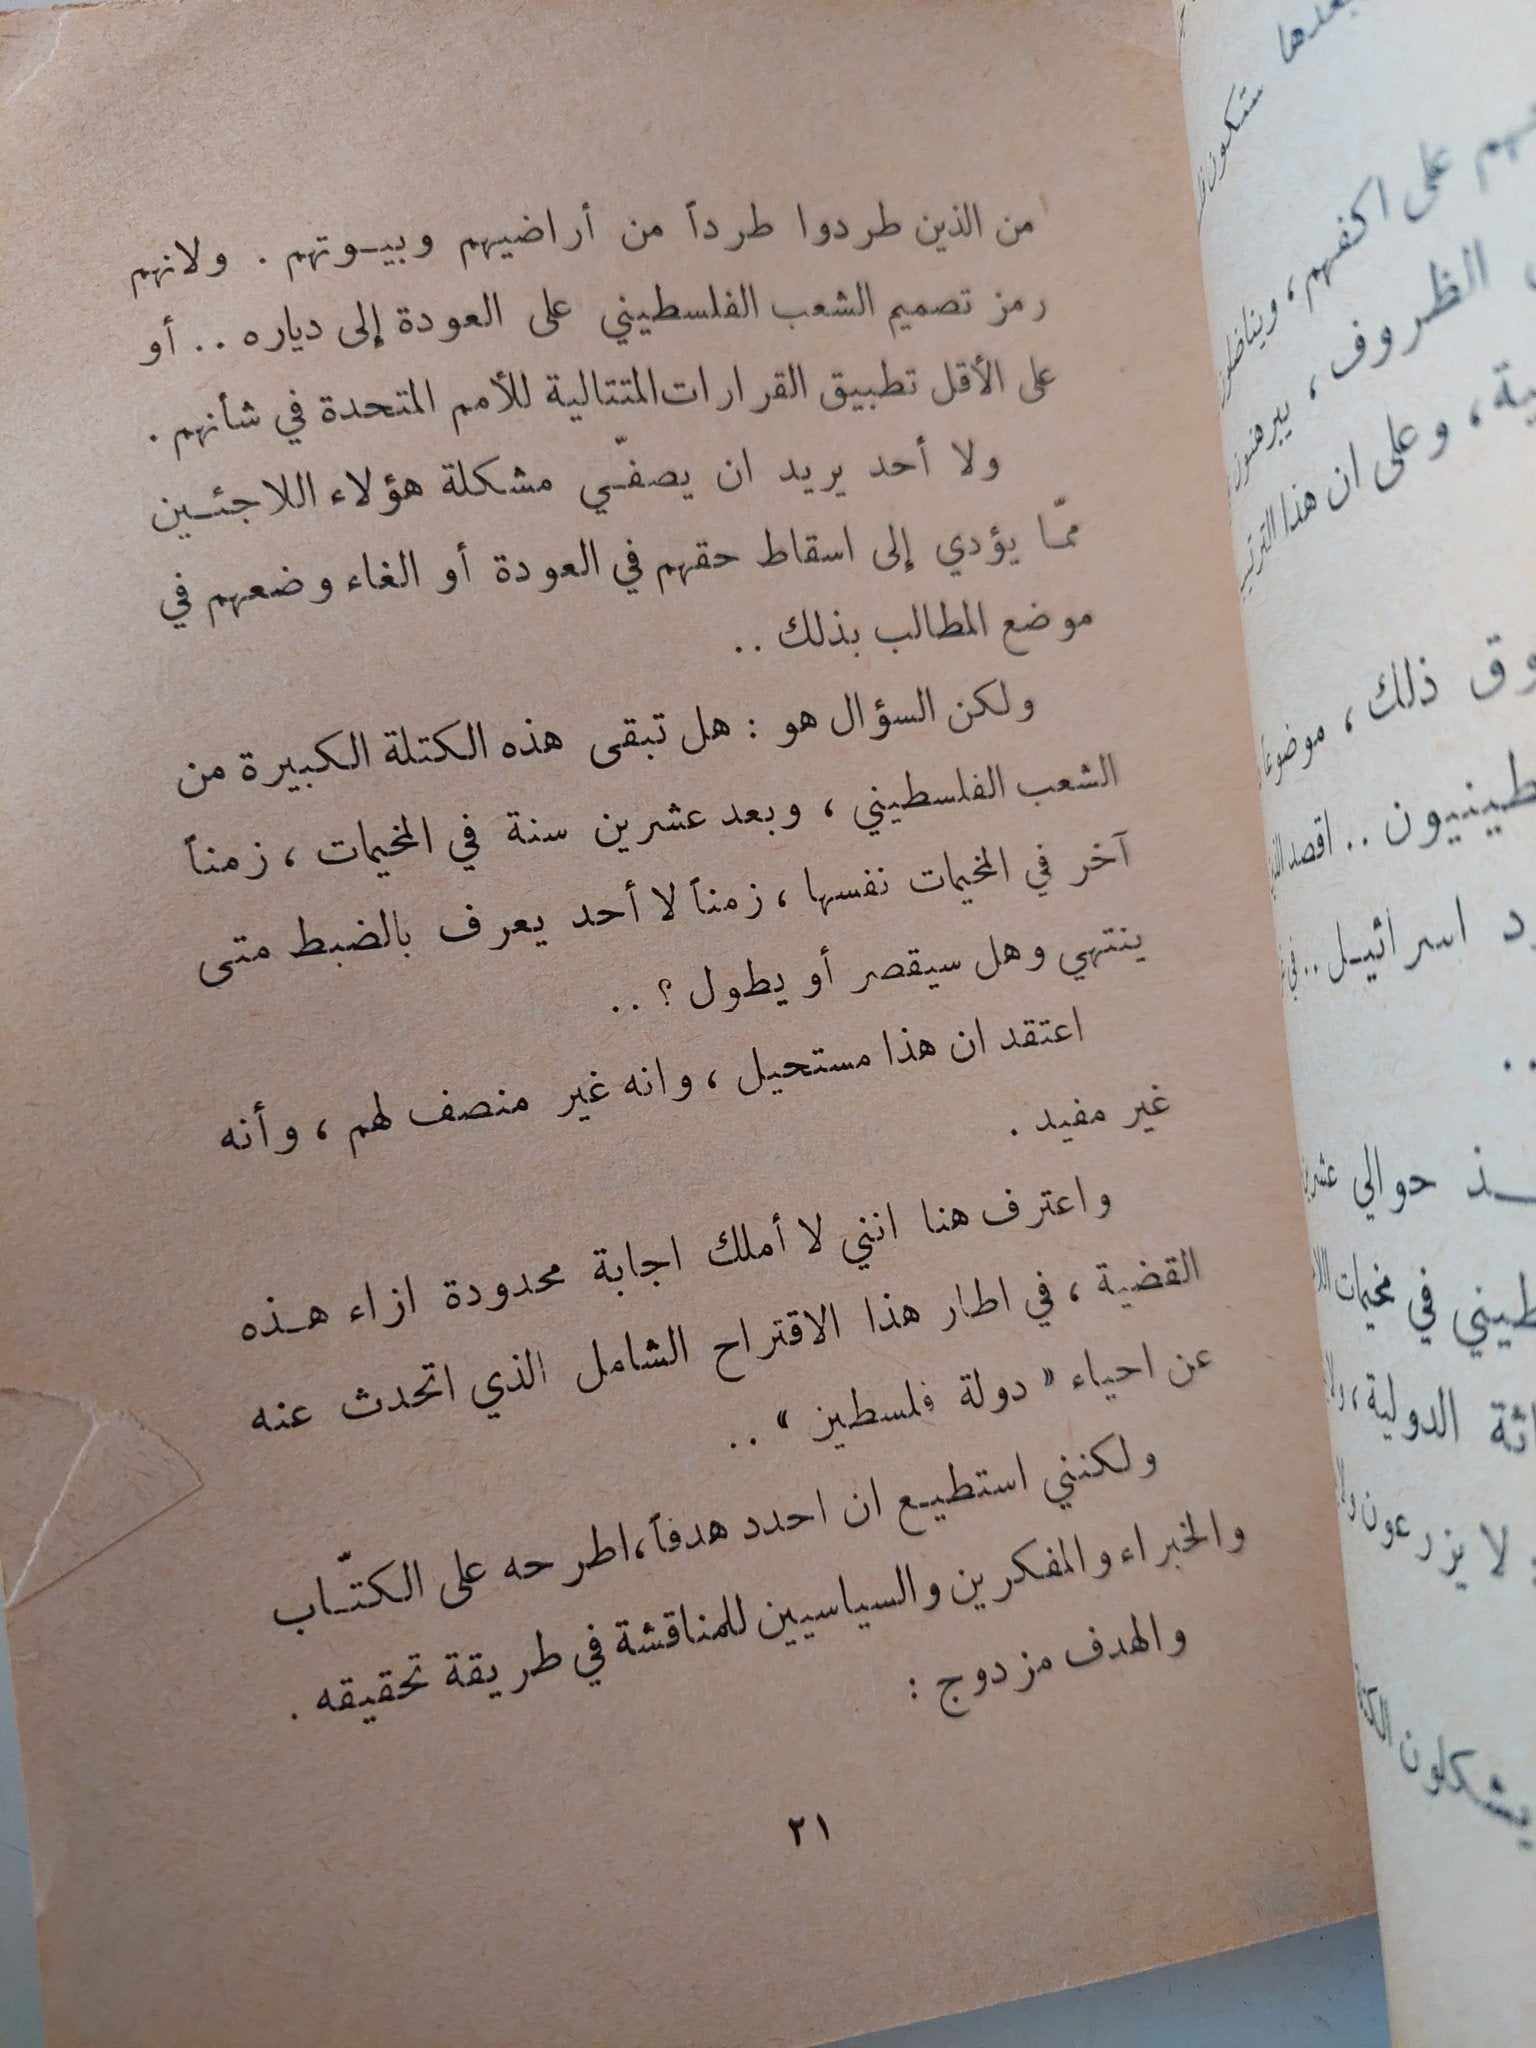 من الذين طردوا طرداً من أراضيهم وبيـوتهم . ولانهم
رمز تصميم الشعب الفلسطيني على العودة إلى دياره . . أو
على الأقل تطبيق القرارات المتتالية للأمم المتحدة في شأنهم .
ولا أحد يريد ان يصفّي مشكلة هؤلاء اللاجئـين
ممّا يؤدي إلى اسقاط حقهم في العودة أو الغاء وضعهم في
موضع المطالب بذلك . .
ولكن السؤال هو : هل تبقى هذه الكتلة الكبيرة من
الشعب الفلسطيني ، وبعد عشرين سنة في المخيمات ، زمناً
آخر في المخيمات نفسها ، زمناً لا أحد يعرف بالضبط متى
ينتهي وهل سيقصر أو يطول ؟ . .
اعتقد ان هذا مستحيل ، وانه غير منصف لهم ، وأنه
غير مفيد .
واعترف هنا انني لا أملك اجابة محدودة ازاء هـذه
القضية ، في اطار هذا الاقتراح الشامل الذي اتحدث عنه
عن احياء « دولة فلسطين » . .
ولكنني استطيـع ان احدد هدفاً ، اطرحه على الكتّـاب
والخبراء والمفكرين والسياسيين للمناقشة في طريقة تحقيقه .
والهدف مزدوج :
٢١
بعدها ستكون
على اكفهم ، ويناضلون
الظروف ، يبرهنون
، وعلى ان هذا
ذلك ، موضوعاً
. . اقصد
اسرائيـل . . في
. .
حوالي
في مخيمات
الدولية ، ولا
لا يزرعون ولا
يشكلون